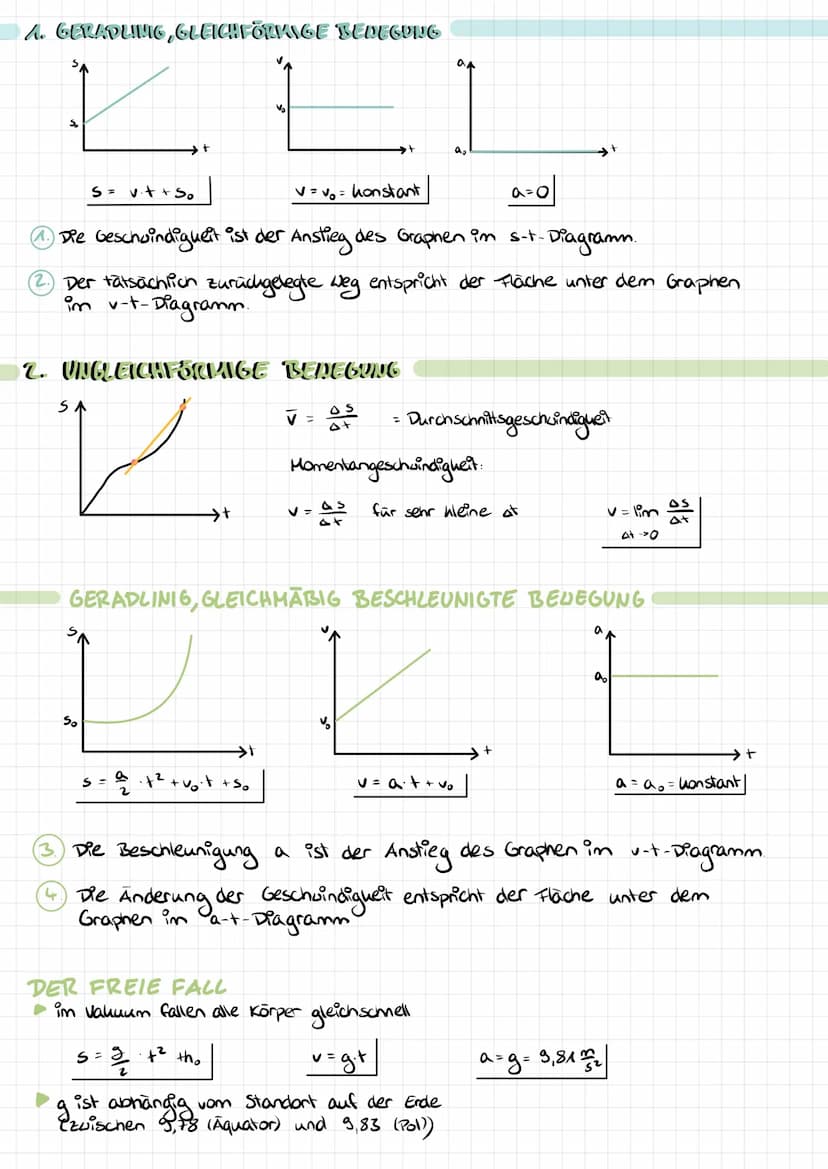 1. GERADLINIG, GLEICHFÖRMIGE BEWEGUNG
s
s
t
v
v₀
t
a
a₀
t
s = v·t + s₀
v = v₀ = konstant
a = 0
1. Die Geschwindigkeit ist der Anstieg des Graphen im s-t-Diagramm.
2. Der tatsächlich zurückgelegte Weg entspricht der Fläche unter dem Graphen
im v-t-Diagramm.
2. UNGLEICHFÖRMIGE BEWEGUNG
s
t
v̅ = Δs/Δt = Durchschnittsgeschwindigkeit
Momentangeschwindigkeit:
v = Δs/Δt für sehr kleine Δt
v = lim Δs/Δt
Δt→0
GERADLINIG, GLEICHMÄßIG BESCHLEUNIGTE BEWEGUNG
s
s₀
t
v
v₀
t
a
a₀
t
s = a/2 · t² + v₀·t + s₀
v = a·t + v₀
a = a₀ = konstant
3. Die Beschleunigung a ist der Anstieg des Graphen im v-t-Diagramm
4. Die Änderung der Geschwindigkeit entspricht der Fläche unter dem
Graphen im a-t-Diagramm
DER FREIE FALL
▶ im Vakuum fallen alle Körper gleichschnell
s = g/2 · t² + h₀
v = g·t
a = g = 9,81 m/s²
▶ g ist abhängig vom Standort auf der Erde
(zwischen 9,78 (Äquator) und 9,83 (Pol))